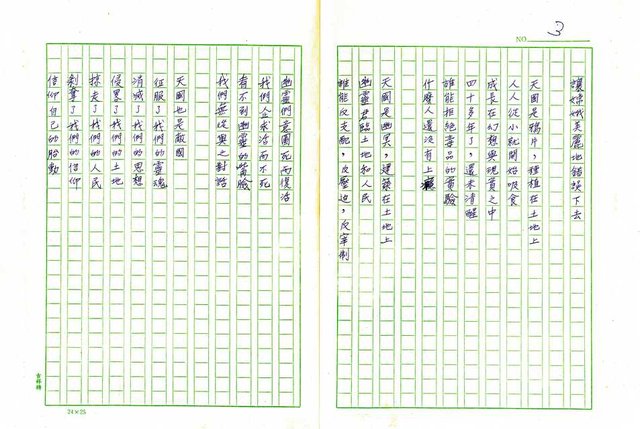 NO. 3
讓嫦娥美麗地錯誤下去
天國是鴉片，種植在土地上
人人從小就開始吸食
成長在幻想與現實之中
四十多年了，還未清醒
誰能拒絕毒品的實驗
什麼人還沒有上癮
天國是幽冥，建築在土地上
幽靈君臨土地和人民
誰能反支配，反壓迫，反宰制
幽靈們意圖死而復活
我們企求活而不死
看不到幽靈的嘴臉
我們無從與之對話
天國也是敵國
征服了我們的靈魂
消滅了我們的思想
侵略了我們的土地
掠走了我們的人民
剝奪了我們的信仰
信仰自己的胎動
24×25